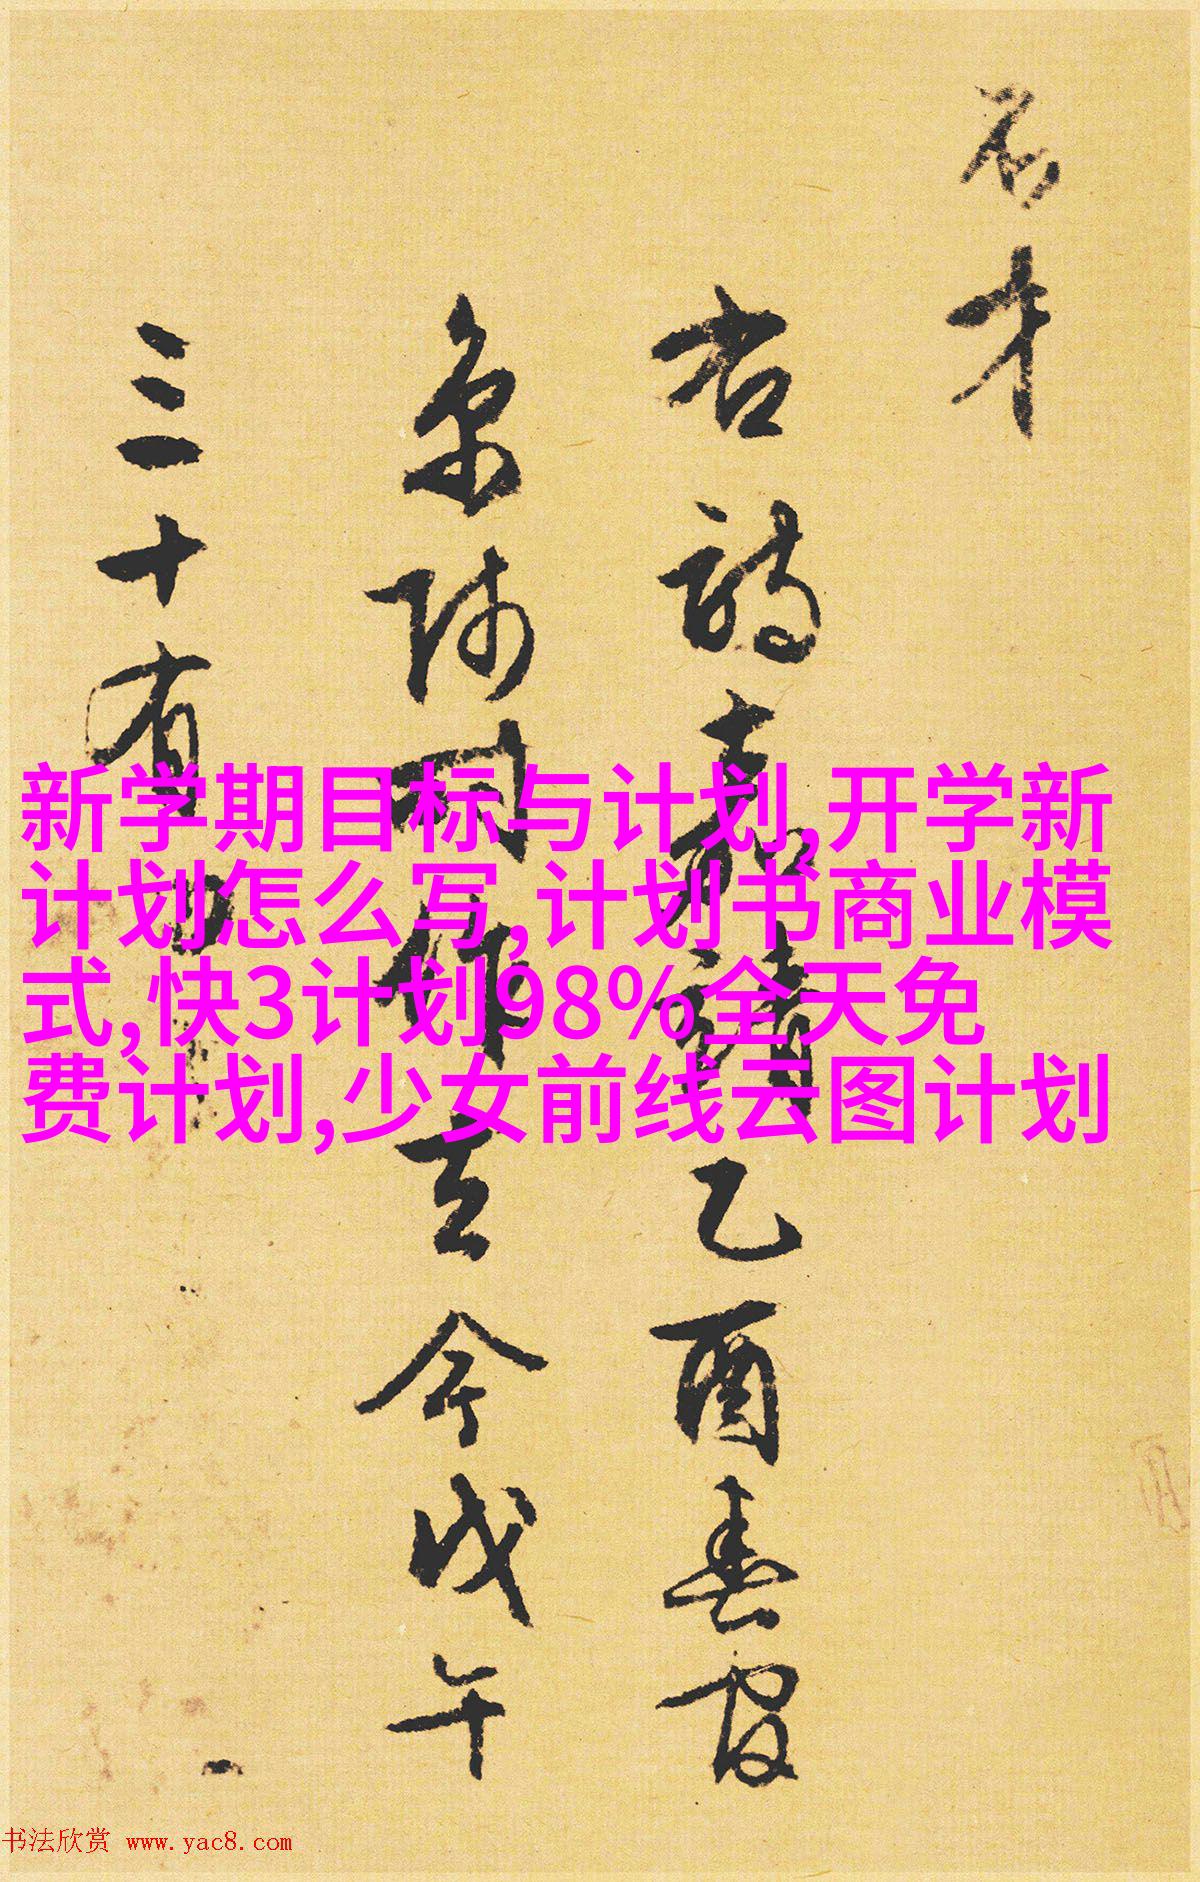 名才
右詩嘉和請乙酉春官
京師同作立今戊午
三十有四
新学期目标与计划,开学新
计划怎么写,计划书商业模
式,快3计划98%全天免
费计划,少女前线云图计划
书法欣赏 www.yac8.com